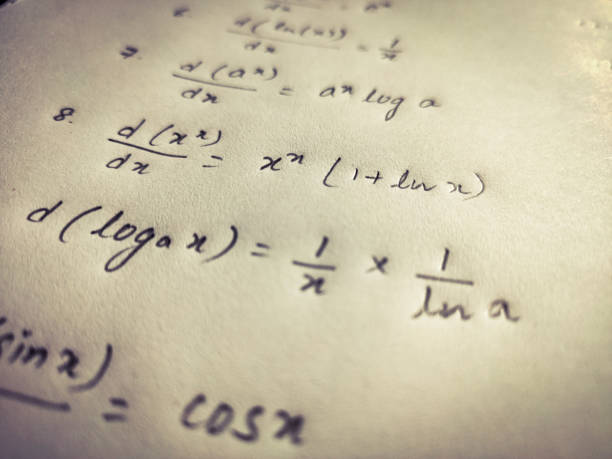 d(ln(x))/dx = 1/x
7. d(aˣ)/dx = aˣ log a
8. d(xˣ)/dx = xˣ (1+ ln x)
d(logₐ x) = 1/x × 1/ln a
(sin x) = cos x